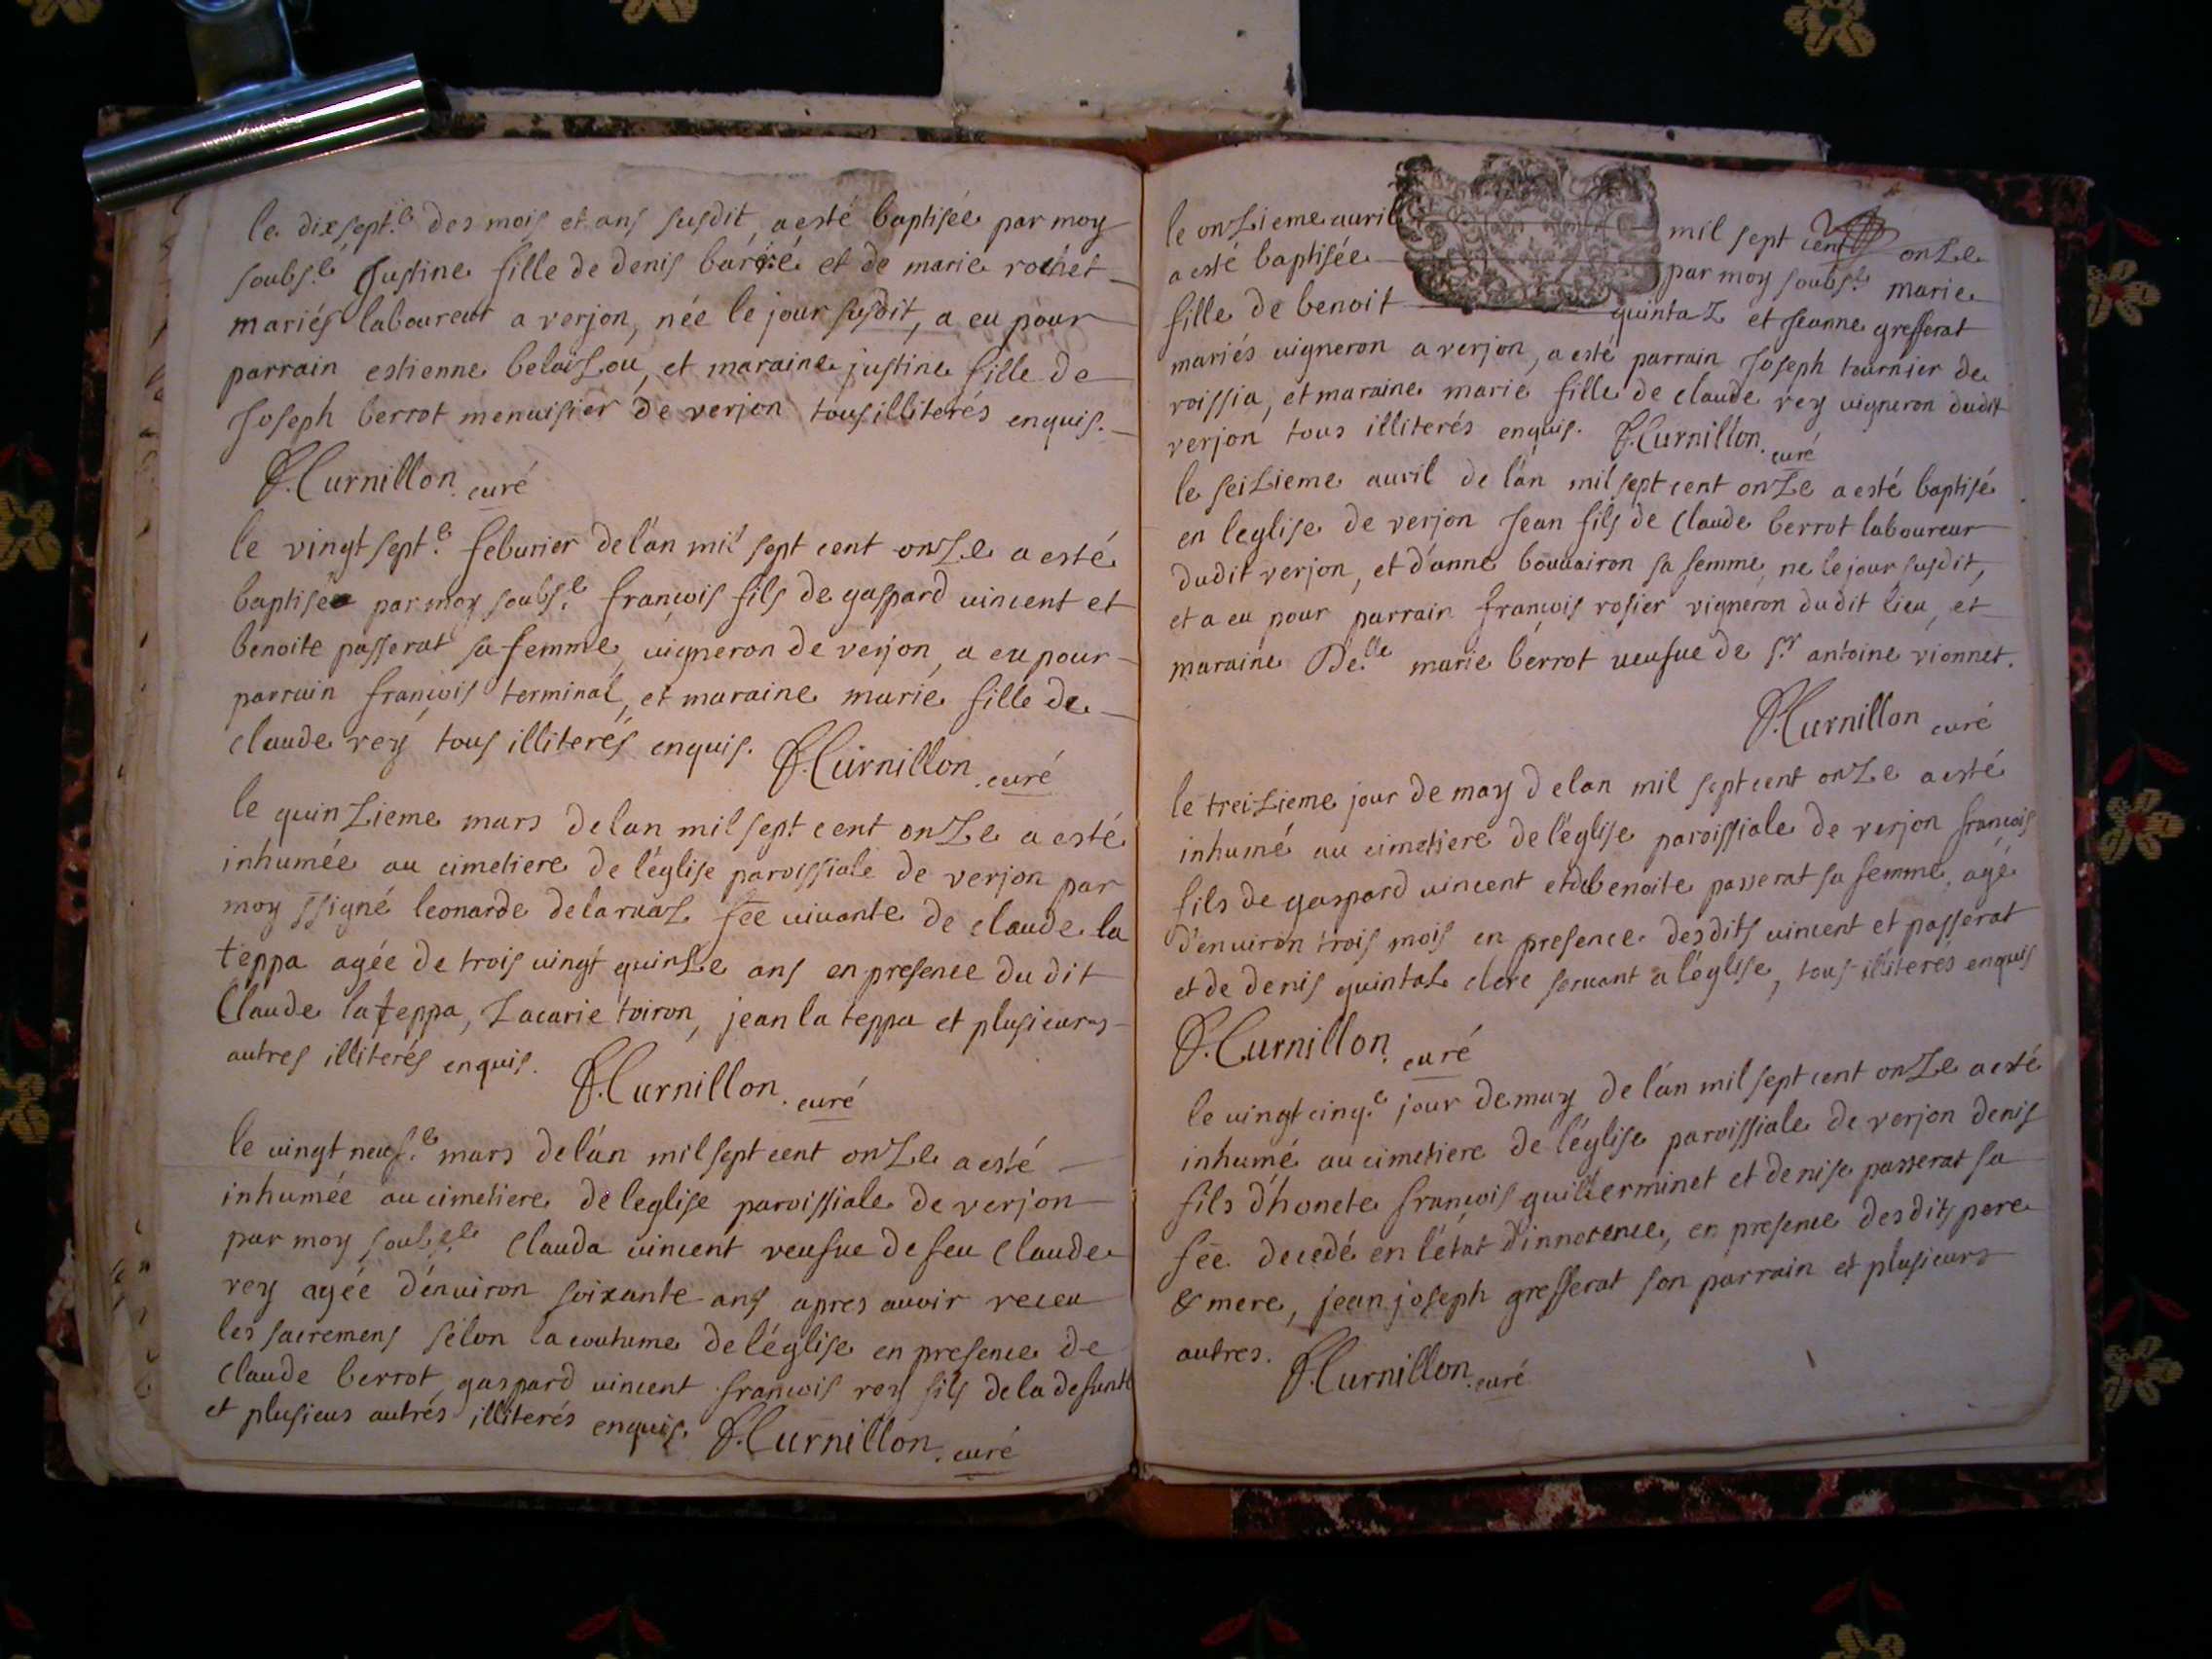 le dixsept.e des mois et ans susdit, a esté baptisée par moy
soubs.é Justine fille de denis barré et de marie rochet
mariés laboureur a verjon, née le jour susdit, a eu pour
parrain estienne belaisou, et maraine justine fille de
Joseph berrot menuisier de verjon tous illiterés enquis.
P. Curnillon. curé
le vingt sept.e feburier de l'an mil sept cent onze a esté
baptisée par moy soubs.é francois fils de gaspard vincent et
benoite passerat sa femme, vigneron de verjon, a eu pour
parrain francois terminal, et maraine marie fille de
claude rey tous illiterés enquis. P. Curnillon. curé
le quinzieme mars de lan mil sept cent onze a esté
inhumée au cimetiere de l'église paroissiale de verjon par
moy ssigné leonarde delaruaz fẽe vivante de claude la
teppa agée de trois vingt quinze ans en presence du dit
Claude la teppa, Zacarie toiron, jean la teppa et plusieurs
autres illiterés enquis. P. Curnillon. curé
le vingt neuf.e mars de l'an mil sept cent onze a esté
inhumée au cimetiere de leglise paroissiale de verjon
par moy soubs.é Clauda vincent veufue de feu Claude
rey agée d'enuiron soixante ans apres auoir receu
les sacremens selon la coutume de l'église en presence de
Claude berrot, gaspard vincent francois rey fils de la defunte
et plusieus autrés illiterés enquis. P. Curnillon. curé
le onzieme auril mil sept cent onze
a esté baptisée par moy soubs.é marie
fille de benoit quintaz et Jeanne gresserat
mariés vigneron a verjon, a esté parrain Joseph tournier de
roissia, et maraine marie fille de claude rey vigneron dudit
verjon tous illiterés enquis. P. Curnillon. curé
le seizieme auril de l'an mil sept cent onze a esté baptisé
en leglise de verjon Jean fils de Claude berrot laboureur
dudit verjon, et d'anne bouuairon sa femme, ne le jour susdit,
et a eu pour parrain francois rosier vigneron dudit lieu, et
maraine De.lle marie berrot ueufue de s.r antoine vionnet.
P. Curnillon curé
le treizieme jour de may de lan mil sept cent onze a esté
inhumé au cimetiere de l'église paroissiale de verjon francois
fils de gaspard vincent et de benoite passerat sa femme, agé
d'enuiron trois mois en presence desdits vincent et passerat
et de denis quintaz clerc seruant a l'église, tous illiterés enquis
P. Curnillon. curé
le vingt cinq.e jour de may de l'an mil sept cent onze a esté
inhumé au cimetiere de l'église paroissiale de verjon denis
fils d'honete francois guillerminet et denise passerat sa
fẽe decedé en l'état d'innocence, en presence desdits pere
& mere, jean joseph gresserat son parrain et plusieurs
autres. P. Curnillon. curé